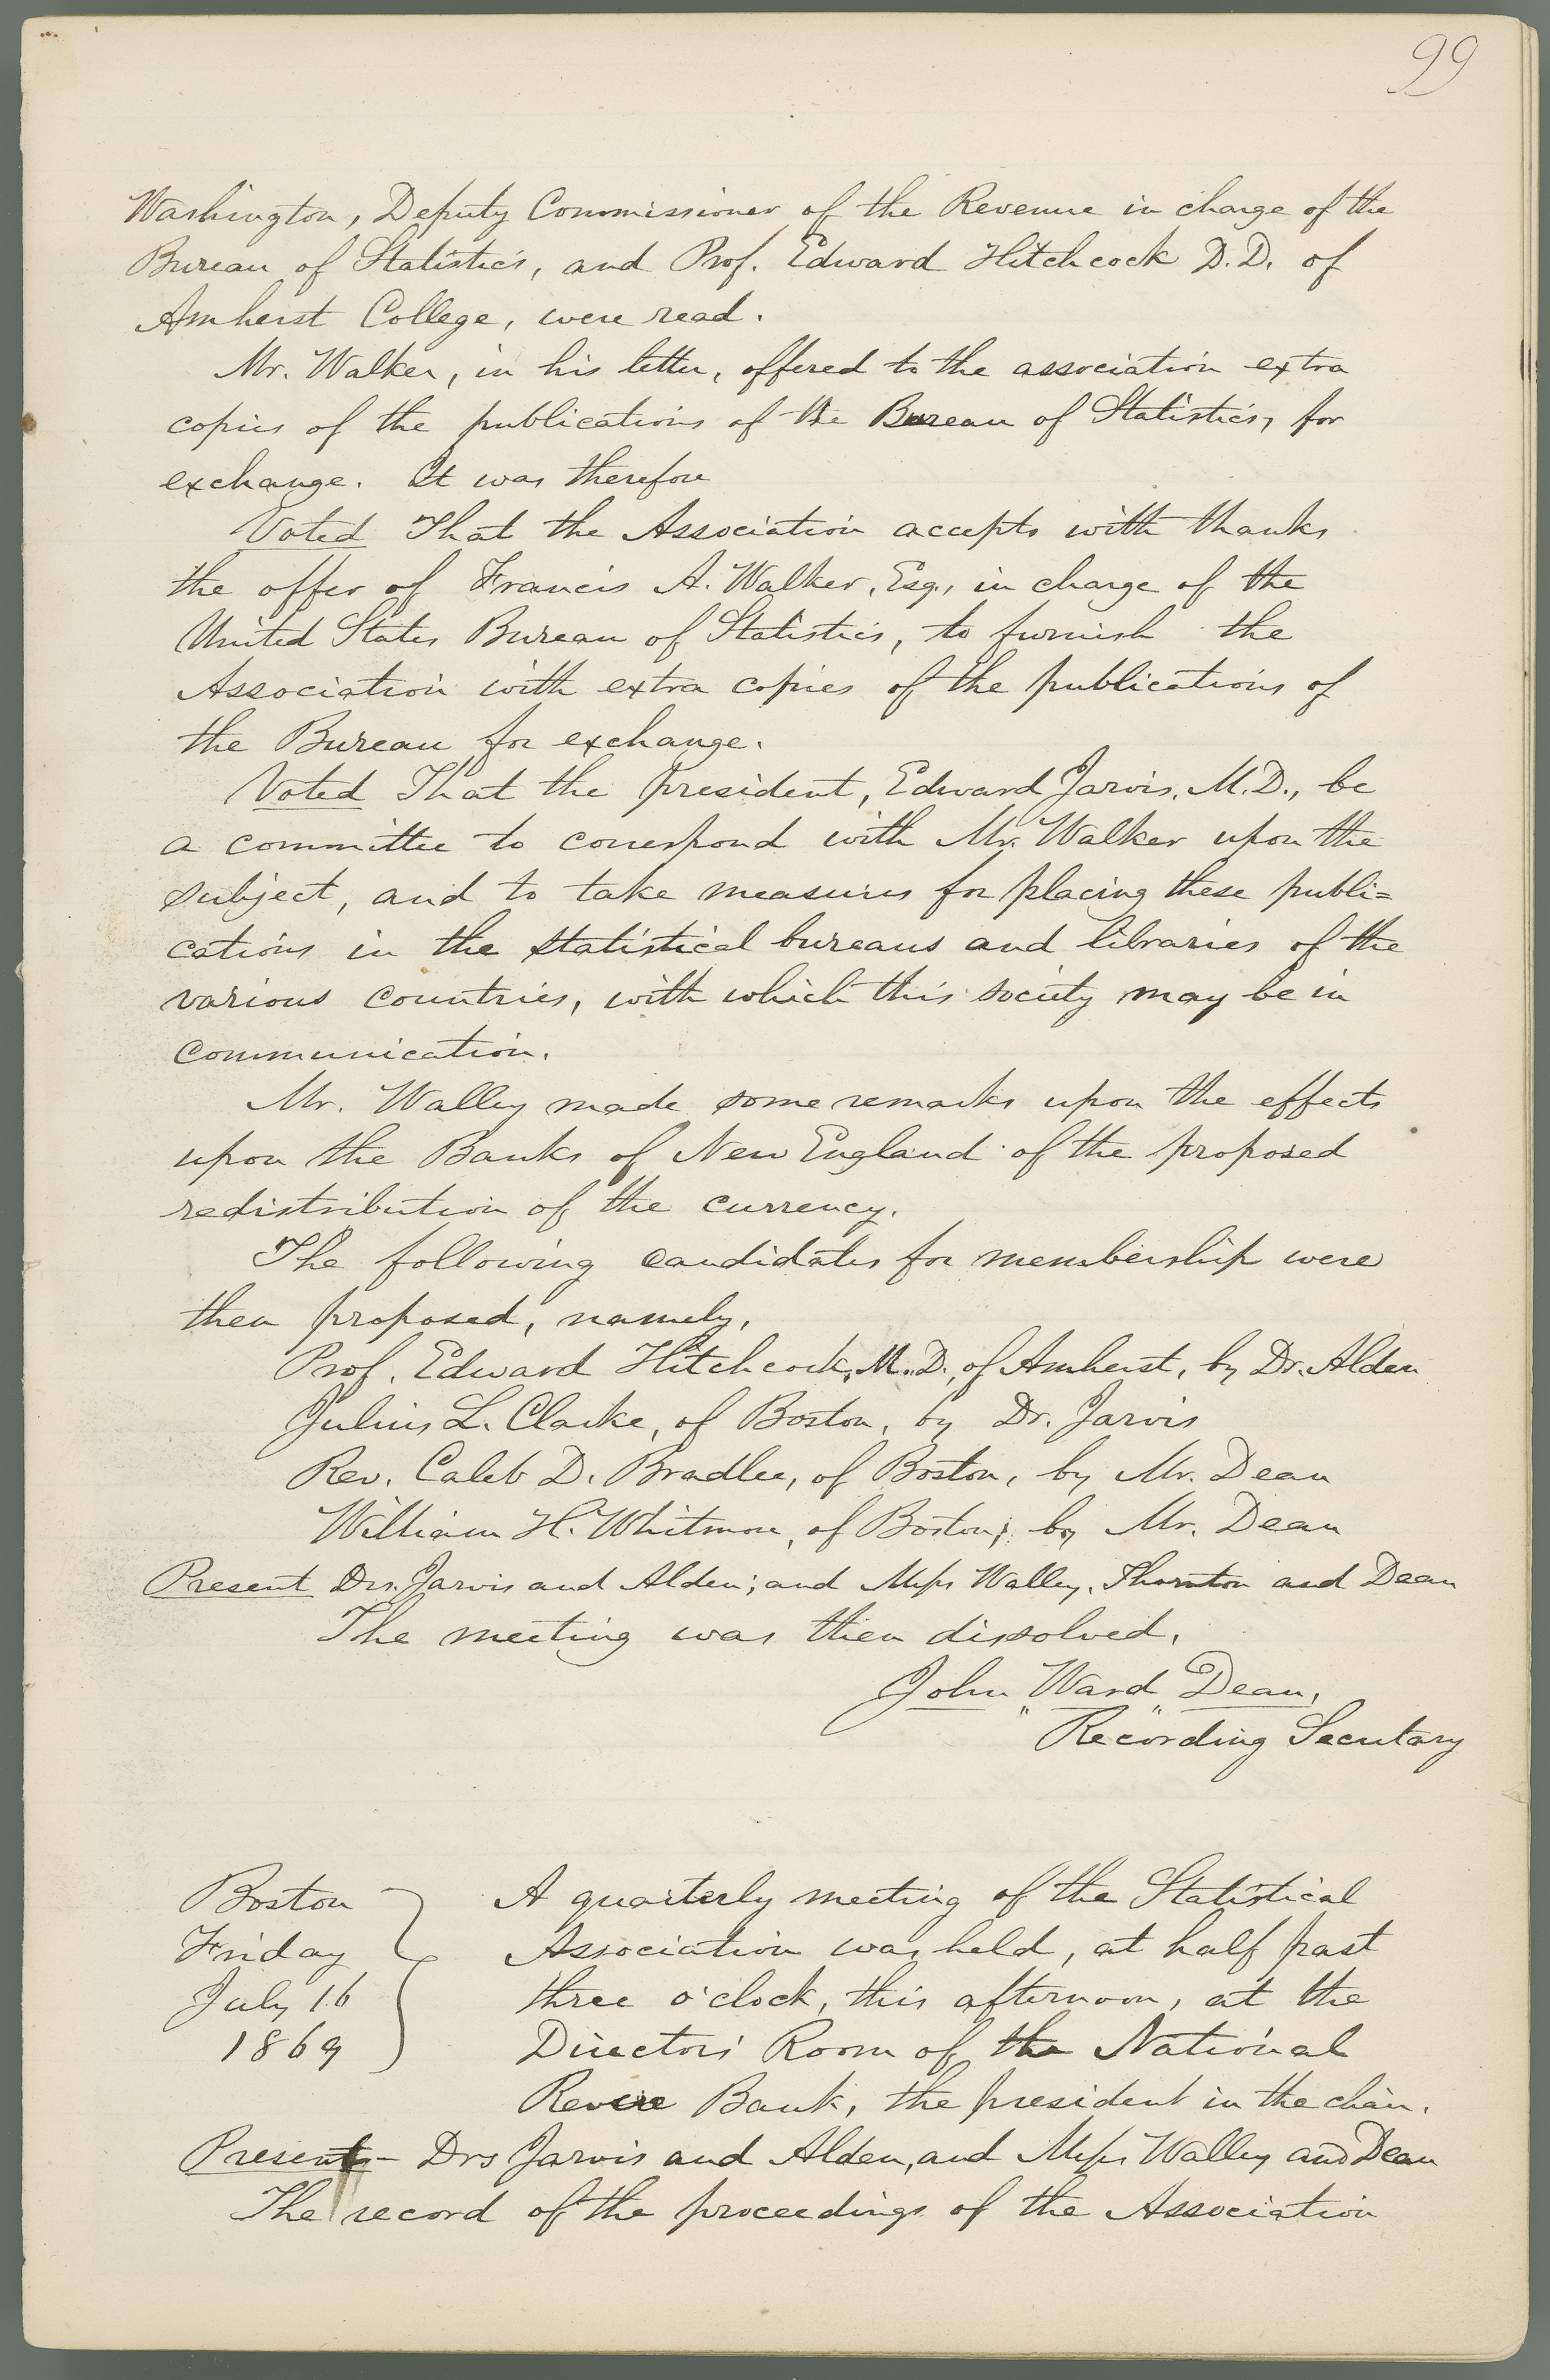 99
Washington, Deputy Commissioner of the Revenue in charge of the
Bureau of Statistics, and Prof. Edward Hitchcock D.D. of
Amherst College, were read.
Mr. Walker, in his letter, offered to the association extra
copies of the publications of the Bureau of Statistics, for
exchange. It was therefore
Voted That the Association accepts with thanks
the offer of Francis A. Walker, Esq., in charge of the
United States Bureau of Statistics, to furnish the
Association with extra copies of the publications of
the Bureau for exchange.
Voted That the president, Edward Jarvis, M.D., be
a committee to correspond with Mr. Walker upon the
subject, and to take measures for placing these publi=
cations in the statistical bureaus and libraries of the
various countries, with which this society may be in
communication.
Mr. Walley made some remarks upon the effects
upon the Banks of New England of the proposed
redistribution of the currency.
The following candidates for membership were
then proposed, namely,
Prof. Edward Hitchcock, M.D., of Amherst, by Dr. Alden
Julius L. Clarke, of Boston, by Dr. Jarvis
Rev. Caleb D. Bradlee, of Boston, by Mr. Dean
William H. Whitmore, of Boston; by Mr. Dean
Present Drs. Jarvis and Alden; and Messrs Walley, Thornton and Dean
The meeting was then dissolved.
John "Ward" Dean,
Recording Secretary
Boston
Friday
July 16
1869
A quarterly meeting of the Statistical
Association was held, at half past
three o'clock, this afternoon, at the
Directors' Room of the National
Revere Bank, the president in the chair.
Present - Drs Jarvis and Alden, and Messrs Walley and Dean
The record of the proceedings of the Association